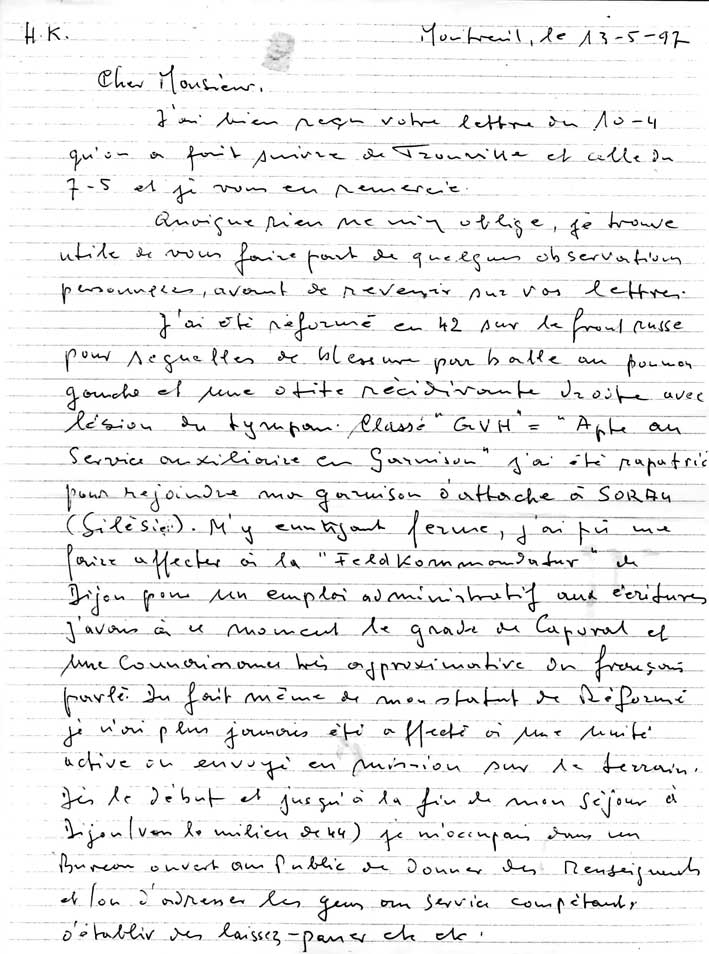 H.K.
Montreuil, le 13-5-97
Cher Monsieur.
J'ai bien reçu votre lettre du 10-4
qu'on a fait suivre de Trouville et celle du
7-5 et je vous en remercie.
Quoique rien ne m'y oblige, je trouve
utile de vous faire part de quelques observations
personnelles, avant de revenir sur vos lettres.
J'ai été réformé en 42 sur le front russe
pour séquelles de blessure par balle au poumon
gauche et une otite récidivante droite avec
lésion du tympan. Classé "GVH" = "Apte au
Service auxiliaire en Garnison" j'ai été rapatrié
pour rejoindre ma garnison d'attache à SORAU
(Silésie). M'y ennuyant ferme, j'ai pû me
faire affecter à la "Feldkommandatur" de
Dijon pour un emploi administratif aux écritures
J'avais à ce moment le grade de Caporal et
une connaissance très approximative du français
parlé. Du fait même de mon statut de Réformé
je n'ai plus jamais été affecté à une unité
active ou envoyé en mission sur le terrain.
Dès le début et jusqu'à la fin de mon séjour à
Dijon (vers le milieu de 44) je m'occupais dans un
Bureau ouvert au Public de donner des Renseignements
et/ou d'adresser les gens au service compétent,
d'établir des laissez-passer etc etc.